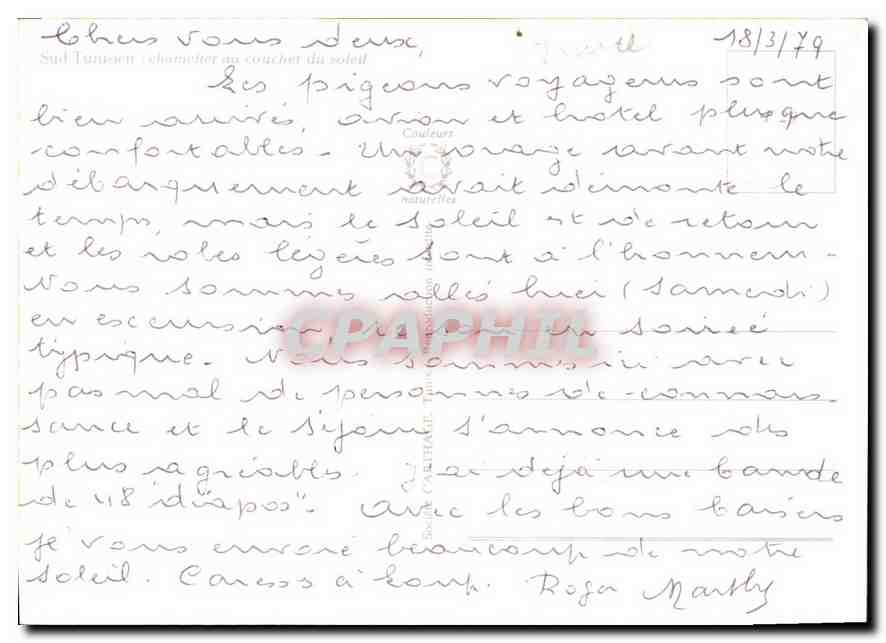 18/3/79
Chers vous deux,
Sud Tunisien : chamelier au coucher du soleil
Les pigeons voyageurs sont
bien arrivés, avion et hotel plus que
Couleurs
confortables - Un orage avant notre
débarquement avait démonté le
naturelles
temps, mais le soleil est de retour
et les robes légères sont à l'honneur -
Nous sommes allés hier (Samedi)
en excursion soirée
CPAPHIL
typique - Nous sommes ici avec
pas mal de personnes de connais-
sance et le séjour s'annonce des
plus agréables. J'ai déjà une bande
de "18 diapos". Avec les bons baisers
je vous envoie beaucoup de notre
soleil. Caresse à Roger
Société CARTHAGE, Tunis